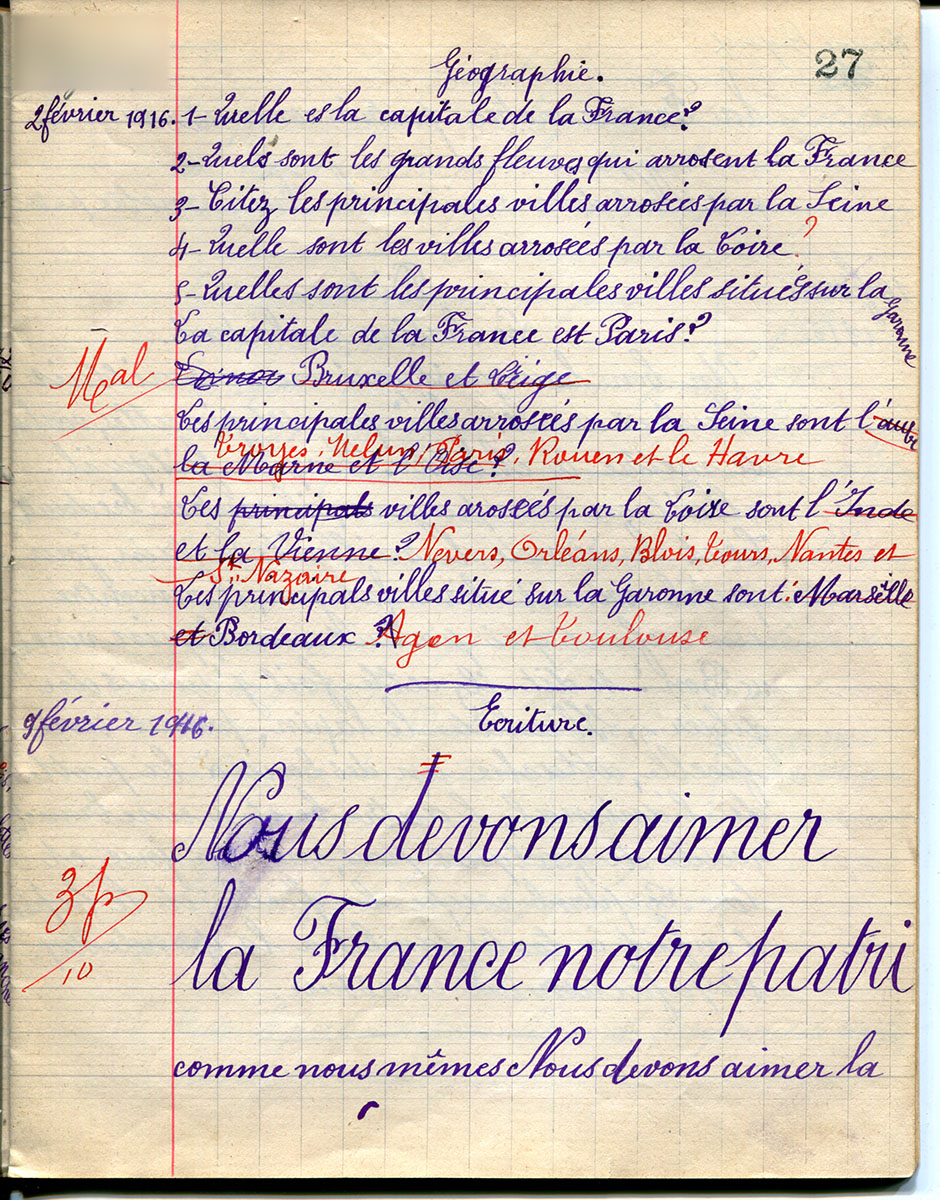 27
Géographie.
2 février 1916. 1- Quelle est la capitale de la France?
2- Quels sont les grands fleuves qui arrosent la France
3- Citez les principales villes arrosées par la Seine
4- Quelle sont les villes arrosées par la Loire ?
5- Quelles sont les principales villes situés sur la Garonne
La capitale de la France est Paris?
Mal
Bruxelle et Liége
Les principales villes arrosées par la Seine sont l'aube
Troyes, Melun, Paris, Rouen et le Havre
la Marne et l'Oise?
Les principals villes arosées par la Loire sont l'Inde
et la Vienne? Nevers, Orléans, Blois, Tours, Nantes et
St Nazaire
Les principals villes situé sur la Garonne sont: Marseille
et Bordeaux ? Agen et Toulouse
9 février 1916.
Ecriture.
Nous devons aimer
3p/10
la France notre patri
comme nous mêmes Nous devons aimer la